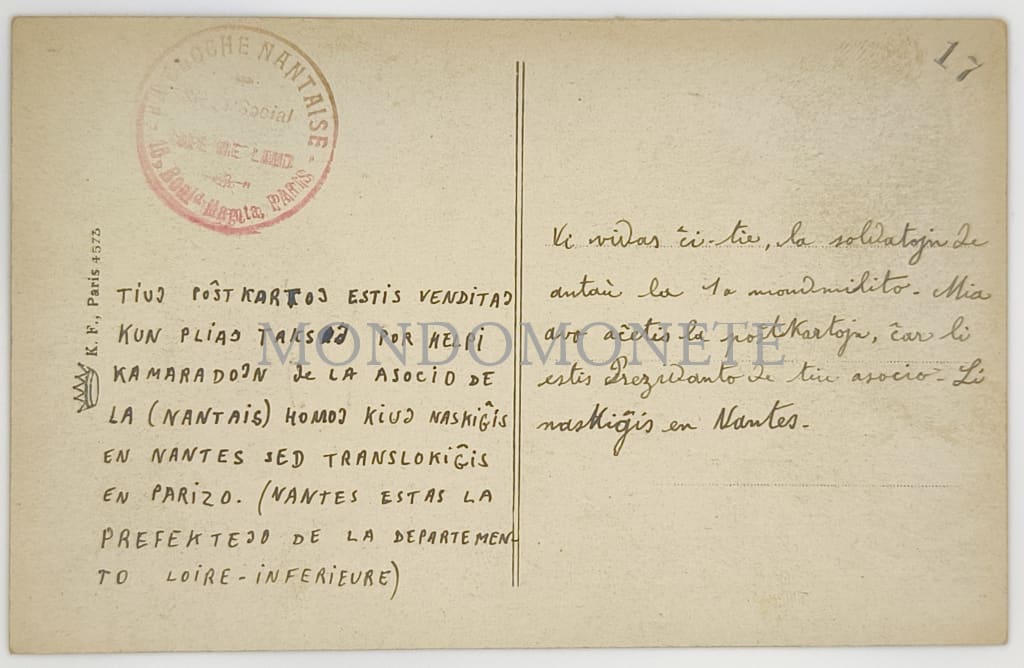 NANTAISE
Social
PARIS
17
K. F., Paris 4573
TIUJ POŜTKARTOJ ESTIS VENDITAJ
KUN PLIAJ TAKSOJ POR HELPI
KAMARADOJN de LA ASOCIO DE
LA (NANTAIS) HOMOJ KIUJ NASKIĜIS
EN NANTES SED TRANSLOKIĜIS
EN PARIZO. (NANTES ESTAS LA
PREFEKTEJO DE LA DEPARTEMEN-
TO LOIRE-INFERIEURE)
Vi vidas ĉi-tie, la soldatojn de
antaŭ la 1a mondmilito. Mia
avo aĉetis la poŝtkartojn, ĉar li
estis Prezidanto de tiu asocio. Li
naskiĝis en Nantes.
MONDOMONETE